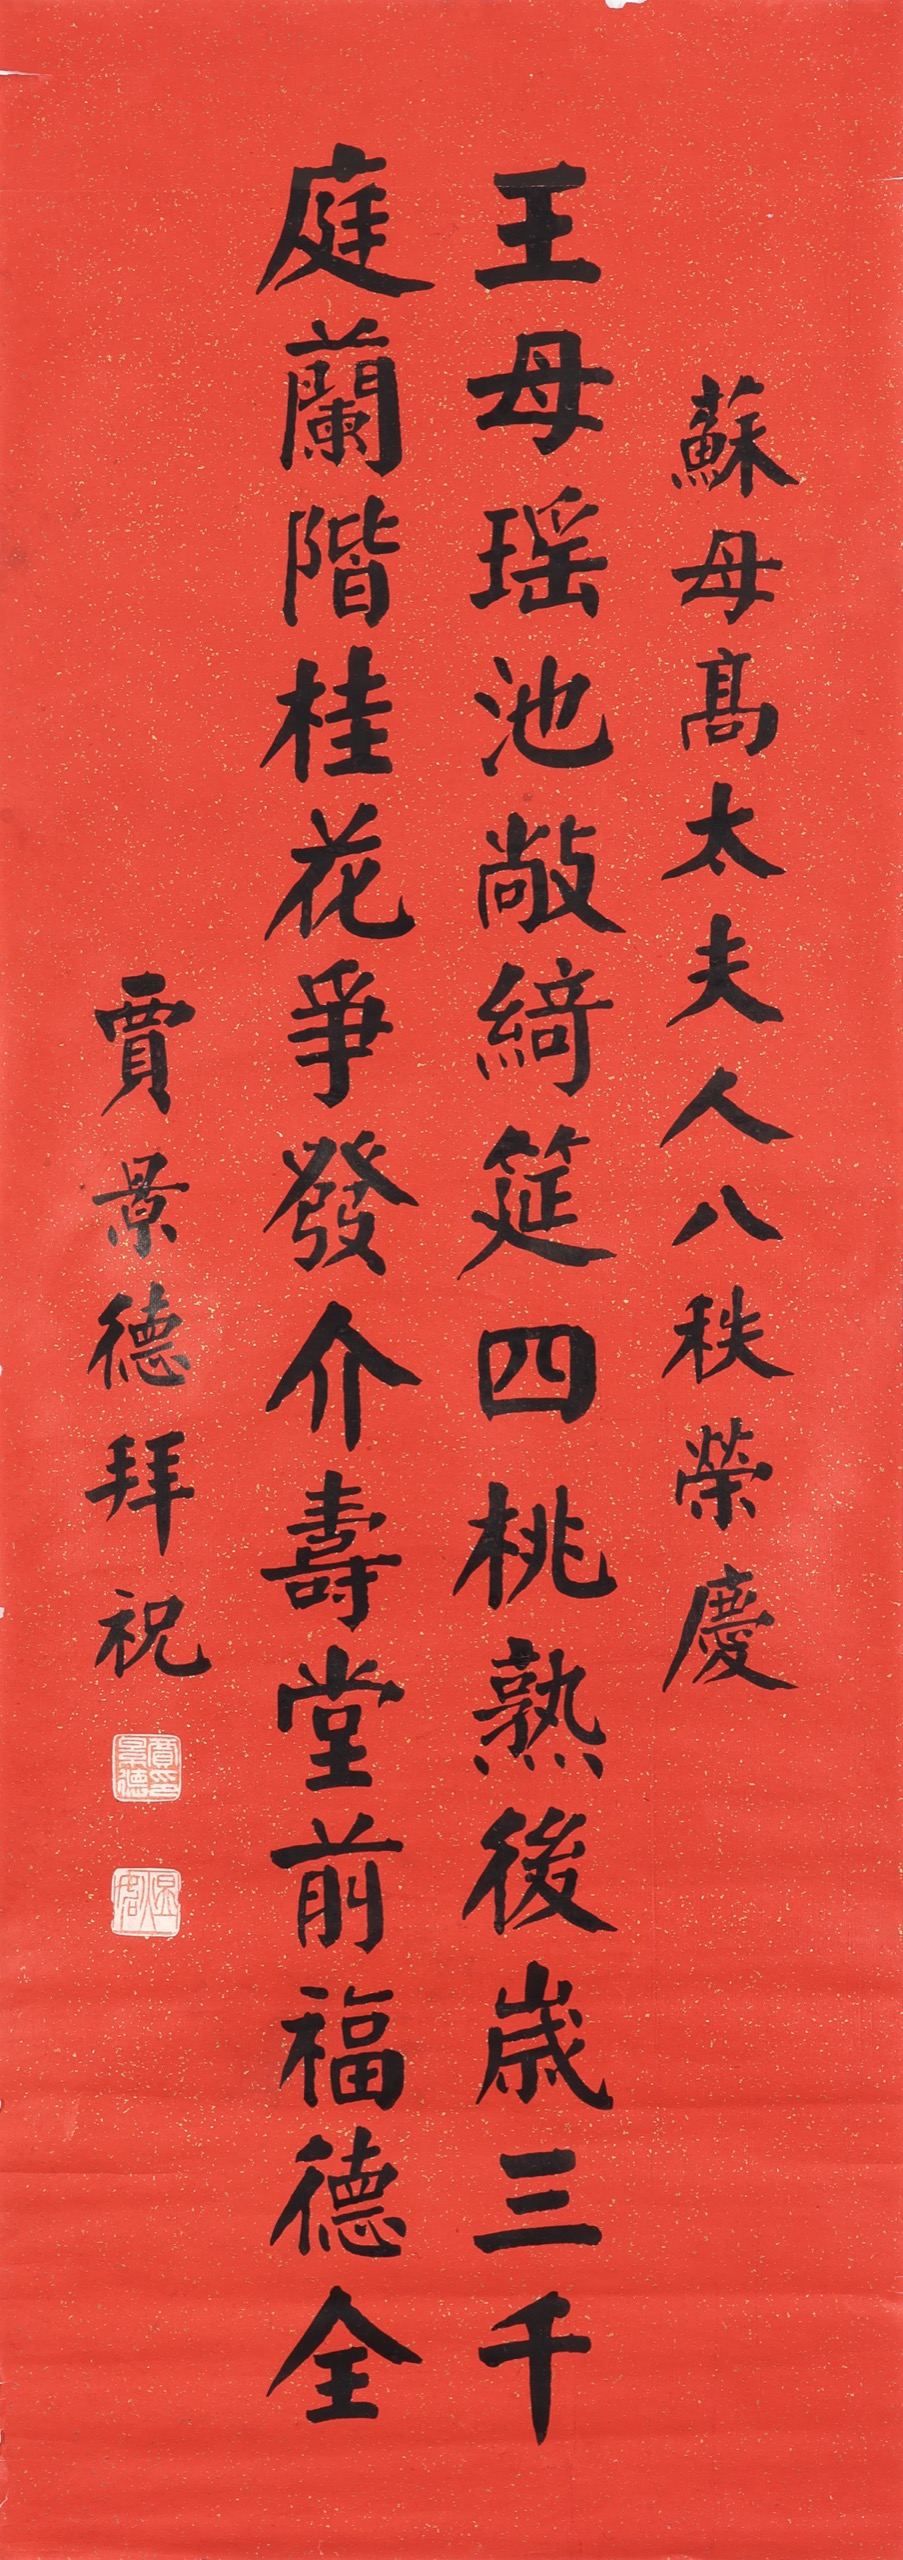 蘇母高太夫人八秩榮慶
王母瑶池敞綺筵四桃熟後歲三千
庭蘭階桂花爭發介壽堂前福德全
賈景德拜祝
賈景德印
煜如